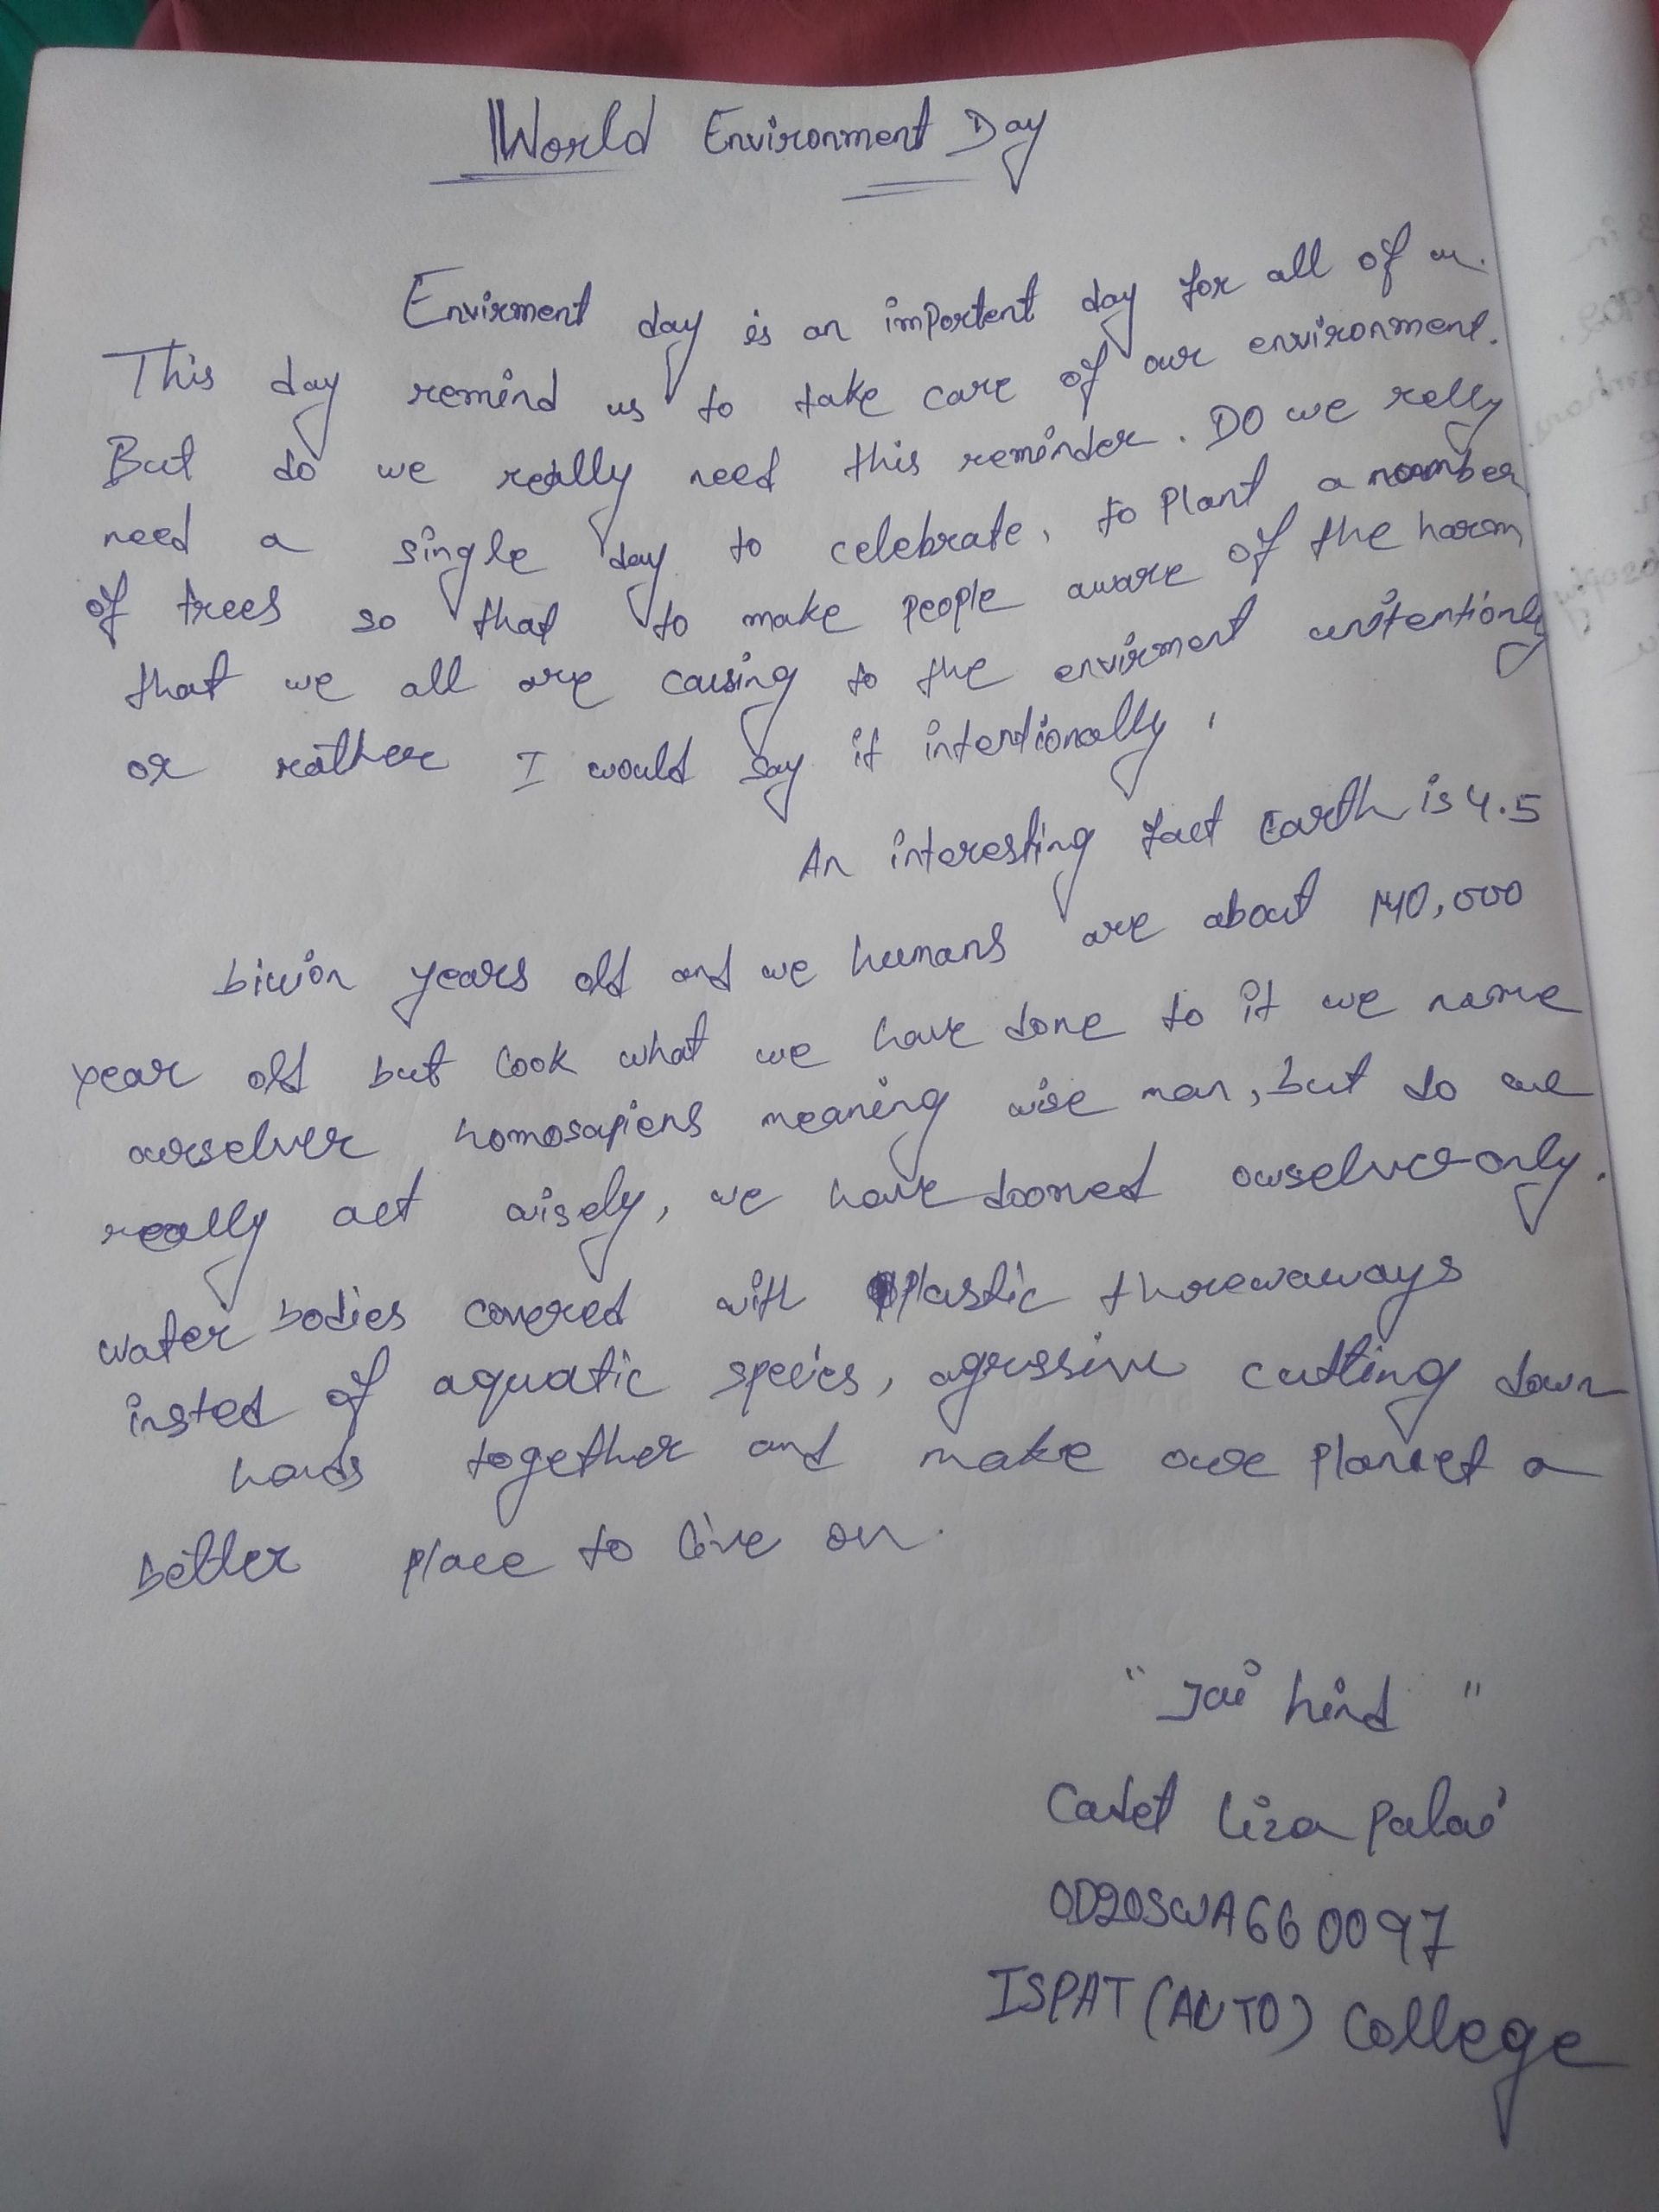 World Environment Day
Envirment day is an importent day for all of us.
This day remind us to take care of our environment.
But do we really need this reminder. DO we relly
need a single day to celebrate, to plant a noumber
of trees so that to make people aware of the harm
that we all are causing to the envirment unitentionly
or rather I would say it intentionally,
An interesting fact Earth is 4.5
billion years old and we humans are about 140,000
year old but look what we have done to it we name
ourselver homosapiens meaning wise man, but do we
really act wisely, we have doomed ourselves only.
water bodies covered with plastic throwaways
insted of aquatic species, agressive cutting down
hands together and make our planet a
better place to live on.
"Jai hind"
Cadet Liza Palai
OD20SWA660097
ISPAT (AUTO) College